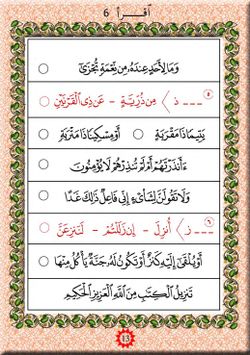 أقرأ 6
وَمَا لِأَحَدٍ عِندَهُۥ مِن نِّعْمَةٍ تُجْزَىٰٓ
٥ ـ ـ ـ ذ 〉 مِن ذُرِّيَّةِ - عَن ذِى ٱلْقَرْنَيْنِ
يَتِيمًا ذَا مَقْرَبَةٍ أَوْ مِسْكِينًا ذَا مَتْرَبَةٍ
ءَأَنذَرْتَهُمْ أَمْ لَمْ تُنذِرْهُمْ لَا يُؤْمِنُونَ
وَلَا تَقُولَنَّ لِشَا۟ىْءٍ إِنِّى فَاعِلٌ ذَٰلِكَ غَدًا
٦ ـ ـ ـ ز 〉 أُنزِلَ - إِن زَلَلْتُم - لَنَنزِعَنَّ
أَوْ يُلْقَىٰٓ إِلَيْهِ كَنزٌ أَوْ تَكُونُ لَهُۥ جَنَّةٌ يَأْكُلُ مِنْهَا
تَنزِيلُ ٱلْكِتَٰبِ مِنَ ٱللَّهِ ٱلْعَزِيزِ ٱلْحَكِيمِ
13